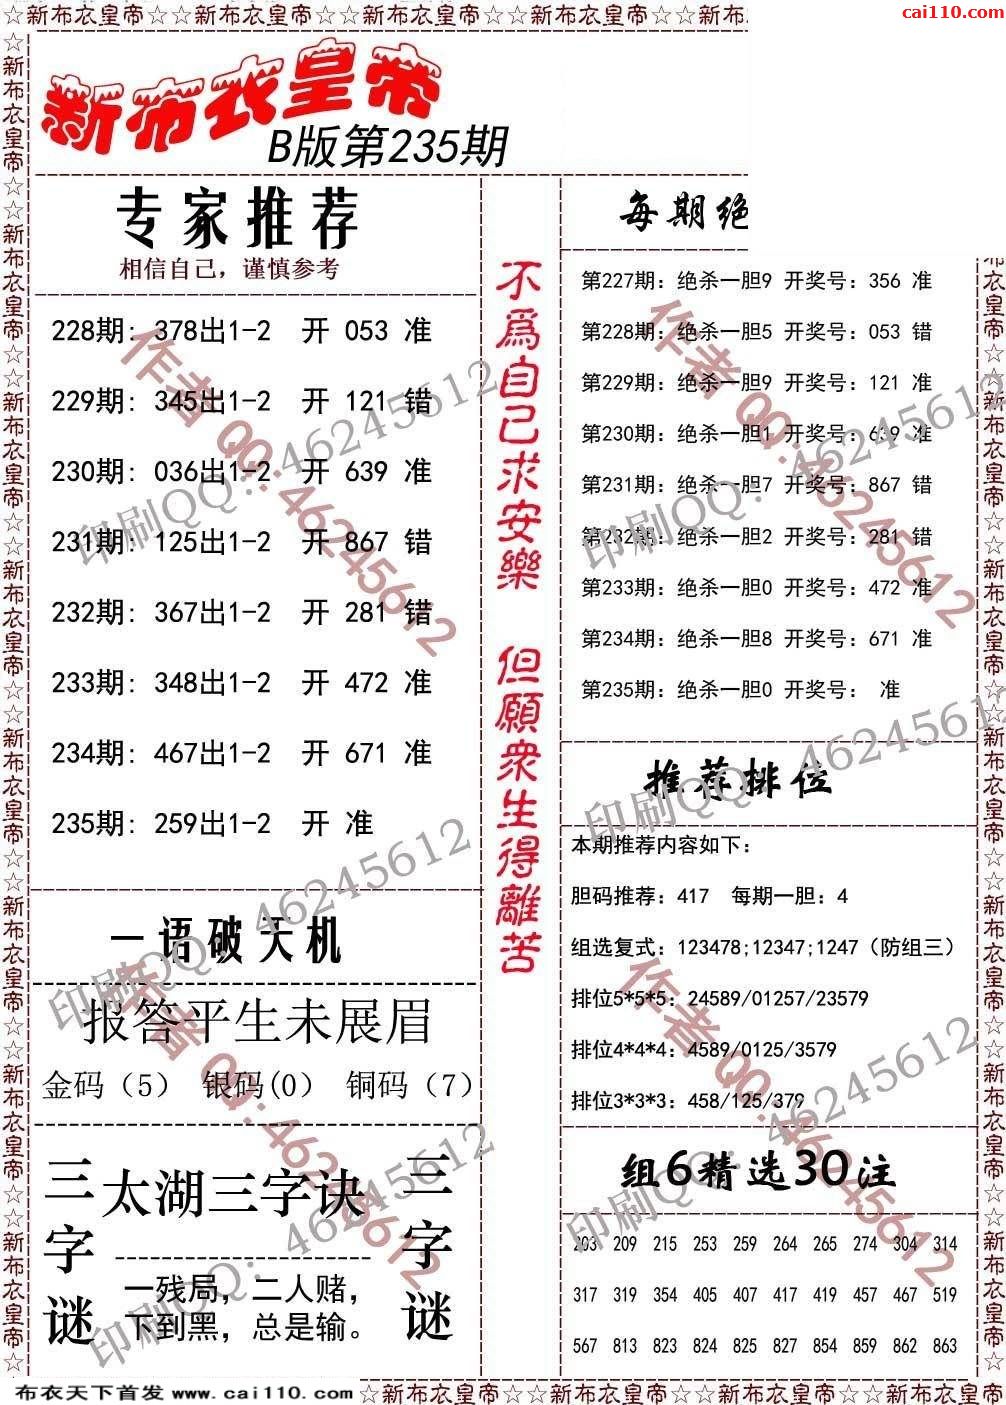 ☆新布衣皇帝☆☆新布衣皇帝☆☆新布衣皇帝☆☆新布衣皇帝☆☆新布
cai110.com
新布衣皇帝
B版第235期
专家推荐
相信自己，谨慎参考
228期: 378出1-2 开 053 准
229期: 345出1-2 开 121 错
230期: 036出1-2 开 639 准
231期: 125出1-2 开 867 错
232期: 367出1-2 开 281 错
233期: 348出1-2 开 472 准
234期: 467出1-2 开 671 准
235期: 259出1-2 开 准
一语破天机
报答平生未展眉
金码（5） 银码(0） 铜码（7）
三字谜
太湖三字诀
一残局，二人赌，
下到黑，总是输。
三字谜
不爲自己求安樂 但願衆生得離苦
每期绝
第227期：绝杀一胆9 开奖号：356 准
第228期：绝杀一胆5 开奖号：053 错
第229期：绝杀一胆9 开奖号：121 准
第230期：绝杀一胆1 开奖号：639 准
第231期：绝杀一胆7 开奖号：867 错
第232期：绝杀一胆2 开奖号：281 错
第233期：绝杀一胆0 开奖号：472 准
第234期：绝杀一胆8 开奖号：671 准
第235期：绝杀一胆0 开奖号： 准
推荐排位
本期推荐内容如下：
胆码推荐：417 每期一胆：4
组选复式：123478;12347;1247（防组三）
排位5*5*5：24589/01257/23579
排位4*4*4：4589/0125/3579
排位3*3*3：458/125/379
组6精选30注
203 209 215 253 259 264 265 274 304 314
317 319 354 405 407 417 419 457 467 519
567 813 823 824 825 827 854 859 862 863
作者QQ:46245612
印刷QQ：46245612
作者QQ:46245612
印刷QQ：46245612
印刷QQ：46245612
印刷QQ：46245612
作者QQ:46245612
作者QQ:46245612
印刷QQ：46245612
印刷QQ：46245612
布衣天下首发 www.cai110.com
☆新布衣皇帝☆☆新布衣皇帝☆☆新布衣皇帝☆☆新布衣皇帝☆
☆新布衣皇帝☆☆新布衣皇帝☆☆新布衣皇帝☆☆新布衣皇帝☆☆新布衣皇帝☆☆新布衣皇帝☆☆新布衣皇帝☆☆新布衣皇帝☆
布衣皇帝☆☆新布衣皇帝☆☆新布衣皇帝☆☆新布衣皇帝☆☆新布衣皇帝☆☆新布衣皇帝☆☆新布衣皇帝☆